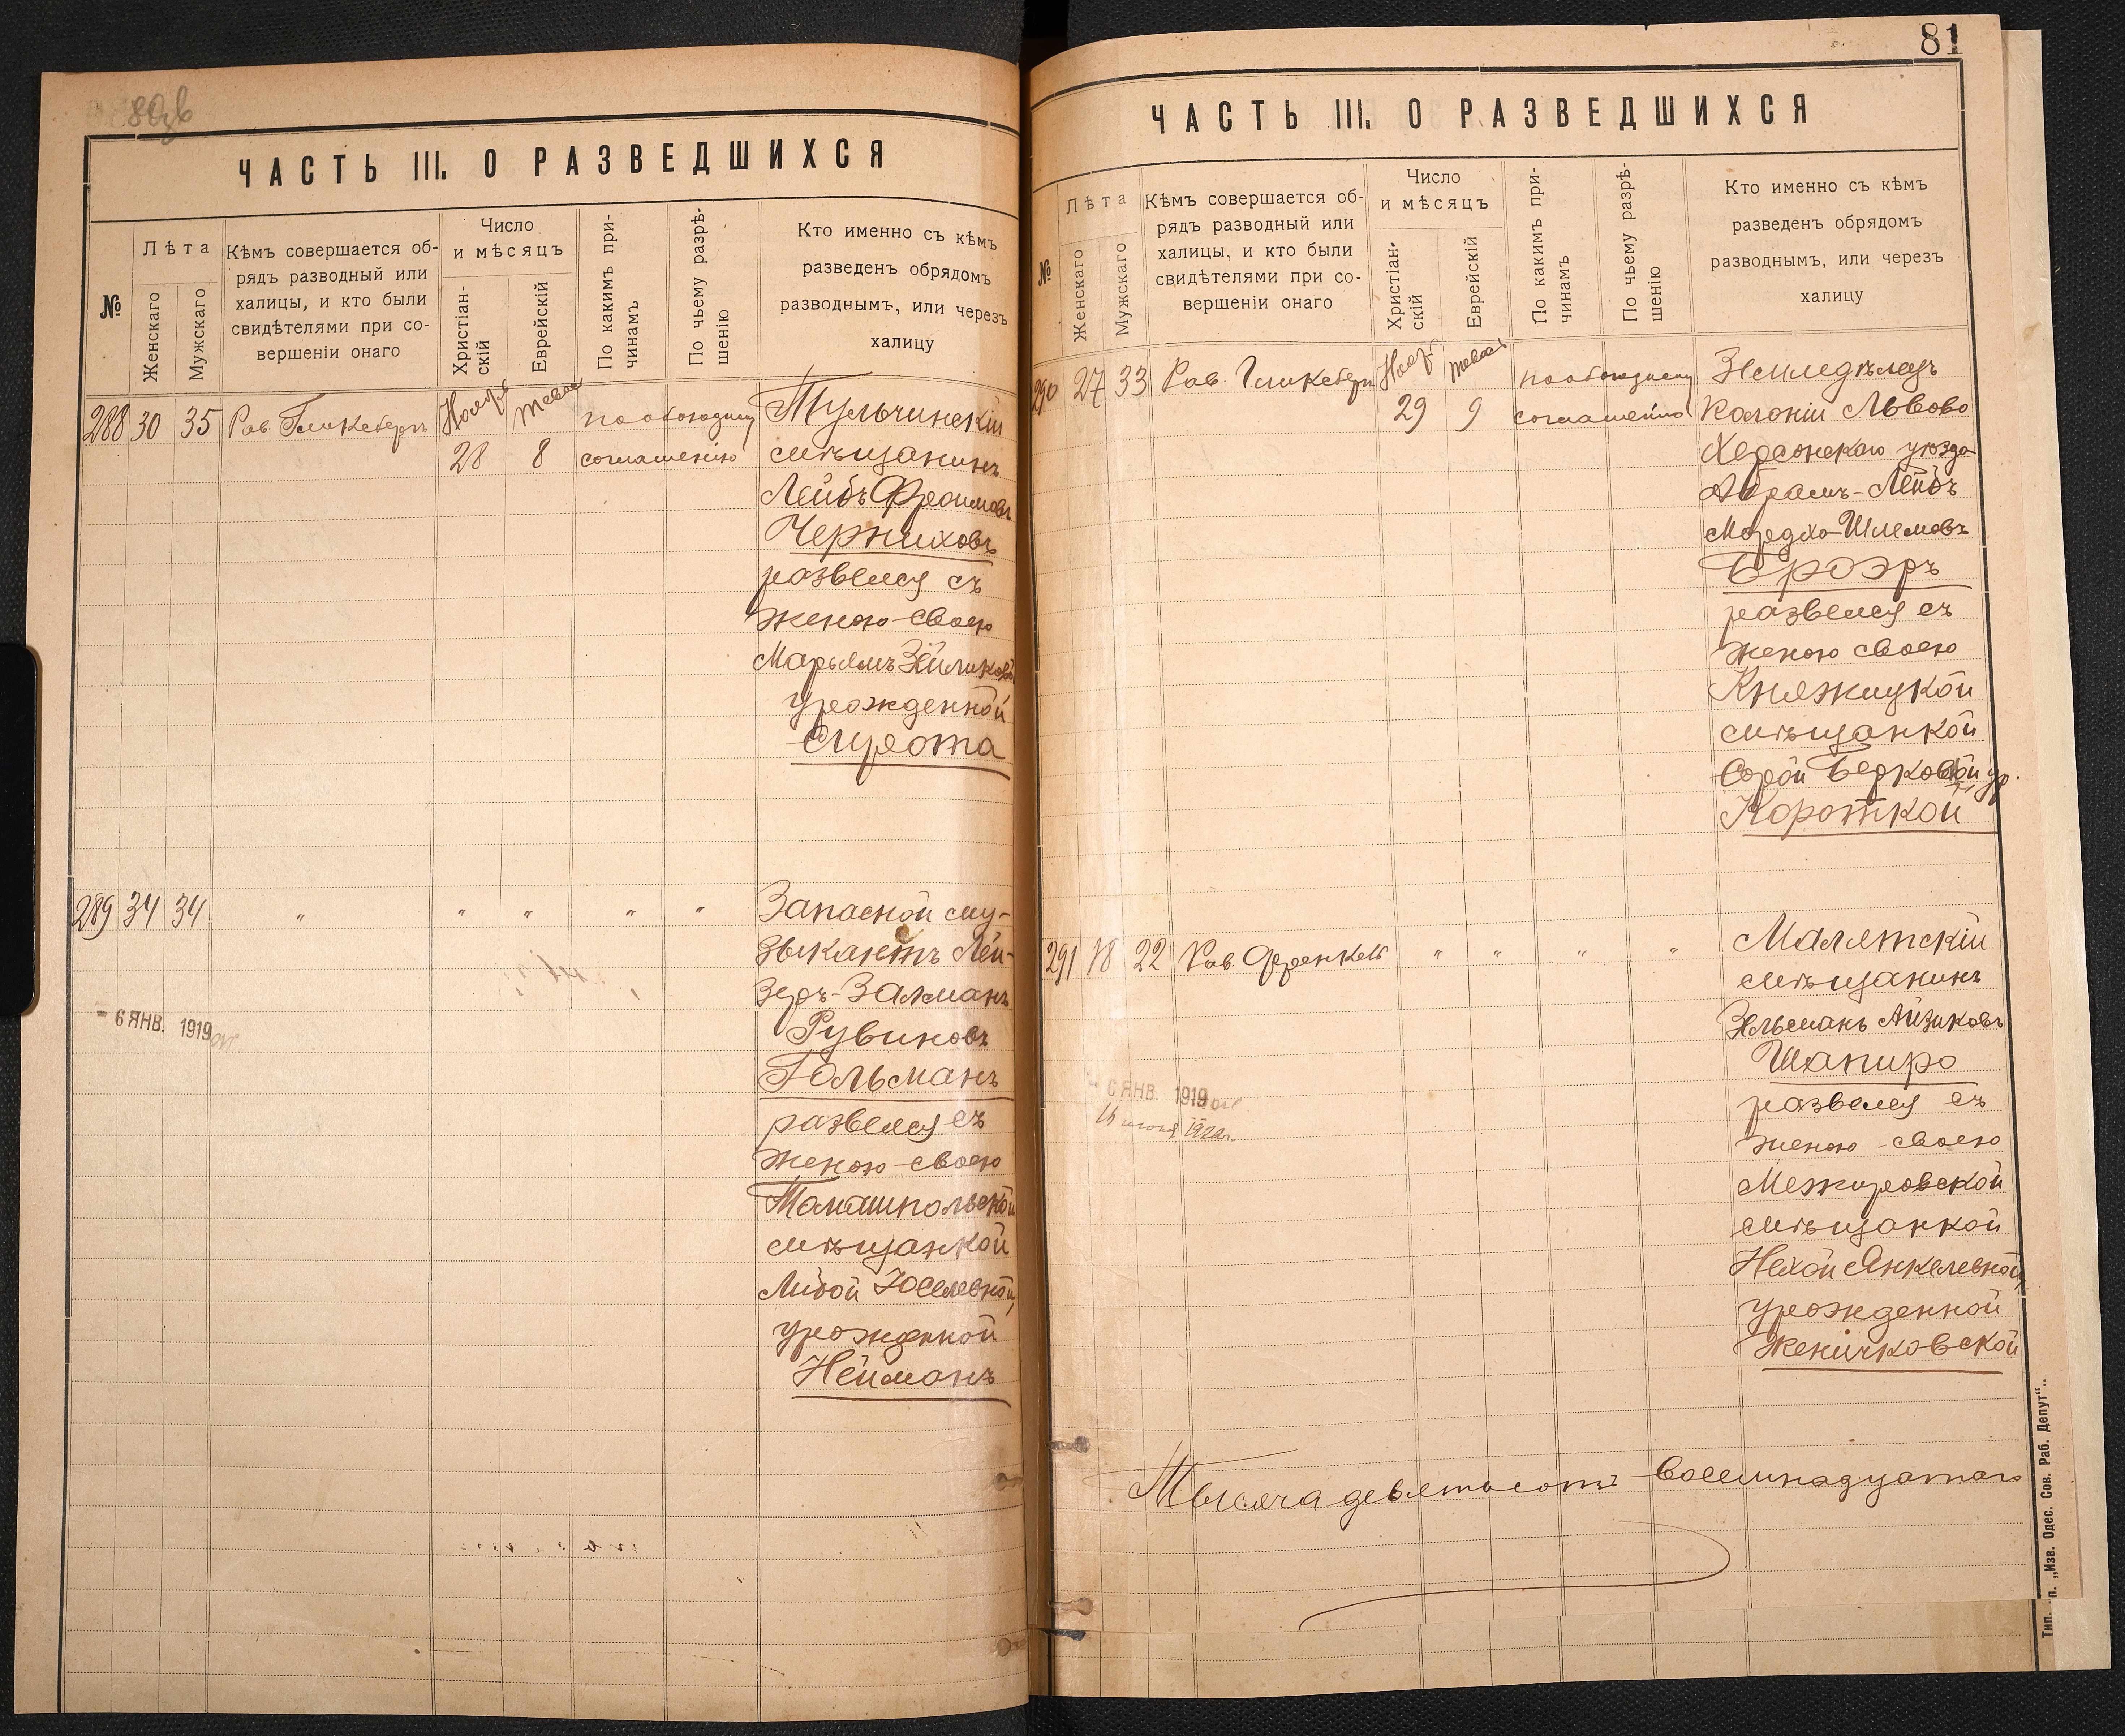 80зв
ЧАСТЬ III. О РАЗВЕДШИХСЯ
№
Лѣта
Женскаго
Мужскаго
Кѣмъ совершается об-
рядъ разводный или
халицы, и кто были
свидѣтелями при со-
вершеніи онаго
Число
и мѣсяцъ
Христіан-
скій
Еврейскій
По какимъ при-
чинамъ
По чьему разрѣ-
шенію
Кто именно съ кѣмъ
разведенъ обрядомъ
разводнымъ, или черезъ
халицу
288 30 35 Рав. Гликсбергъ Ноябр тевас по обоюдному Тульчинскій
28 8 соглашенію мѣщанинъ
Лейбъ Фроимовъ
Черниховъ
развелся съ
женою своею
Марьямъ Зейликов
урожденной
Сирота
289 34 34 " " " " " Запасной му-
зыкантъ Лей-
зеръ-Залманъ
Рувиновъ
Гольманъ
развелся съ
женою своею
Томашпольской
мѣщанкой
Либой Юселевной,
урожденной
Нейманъ
- 6 ЯНВ. 1919
81
ЧАСТЬ III. О РАЗВЕДШИХСЯ
№
Лѣта
Женскаго
Мужскаго
Кѣмъ совершается об-
рядъ разводный или
халицы, и кто были
свидѣтелями при со-
вершеніи онаго
Число
и мѣсяцъ
Христіан-
скій
Еврейскій
По какимъ при-
чинамъ
По чьему разрѣ-
шенію
Кто именно съ кѣмъ
разведенъ обрядомъ
разводнымъ, или черезъ
халицу
290 27 33 Рав. Гликсбергъ Нояб тевас по обоюдному Земледѣлецъ
29 9 соглашенію Колоніи Львово
Херсонскаго уѣзда
Абрамъ-Лейбъ
Мордхо-Шлемовъ
Броэръ
развелся съ
женою своею
Княжицкой
мѣщанкой
Сорой Берковой ур.
Короткой
291 18 22 Рав. Френкель " " " " Малятскій
мѣщанинъ
Зельманъ Айзиковъ
Шапиро
развелся съ
женою своею
Межировской
мѣщанкой
Нехой Янкелевной,
урожденной
Женичковской
- 6 ЯНВ. 1919
Тысяча девятьсотъ восемнадцатаго
Тип. п. „Изв. Одес. Сов. Раб. Депут“..